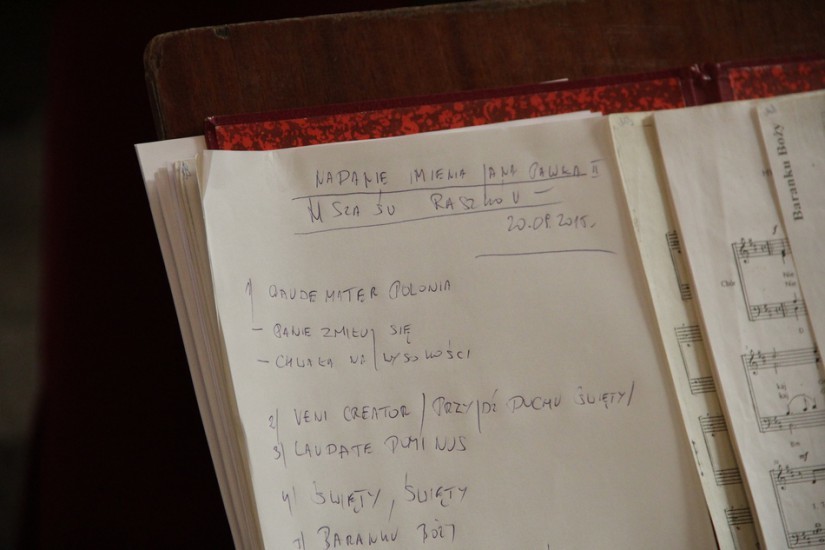 NADANIE IMIENIA JANA PAWŁA II
MSZA ŚW RASZKOW –
20.09.2015r.
1) GAUDE MATER POLONIA
– PANIE ZMIŁUJ SIĘ
– CHWAŁA NA WYSOKOŚCI
2) VENI CREATOR / PRZYJDŹ DUCHU ŚWIĘTY /
3) LAUDATE DOMINUS
4) ŚWIĘTY, ŚWIĘTY
BARANKU BOŻY
Baranku Boży
f
Chór
Nie
Nie
mf